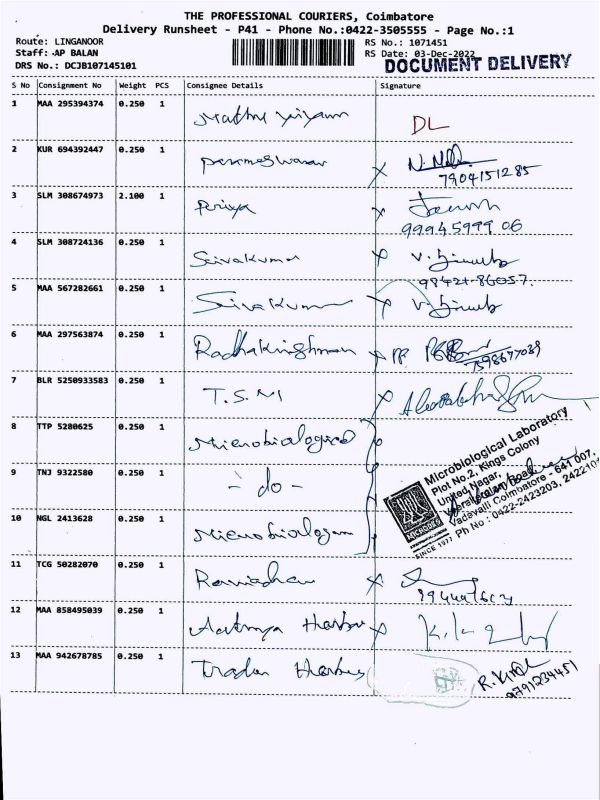 THE PROFESSIONAL COURIERS, Coimbatore
Delivery Runsheet - P41 - Phone No.:0422-3505555 - Page No.:1
Route: LINGANOOR
RS No.: 1071451
Staff: AP BALAN
RS Date: 03-Dec-2022
DRS No.: DCJB107145101
DOCUMENT DELIVERY
S No Consignment No Weight PCS Consignee Details Signature
1 MAA 295394374 0.250 1 DL
2 KUR 694392447 0.250 1 Parameswaran
7904151285
3 SLM 308674973 2.100 1 Priya
9994599906
4 SLM 308724136 0.250 1 Sivakumar
98421-86057.
5 MAA 567282661 0.250 1 Sivakumar
6 MAA 297563874 0.250 1 Radhakrishnan
7598677039
7 BLR 5250933583 0.250 1 T.S.M
8 TTP 5280625 0.250 1 Microbiological
9 TNJ 9322580 0.250 1 - do -
10 NGL 2413628 0.250 1
Microbiological Laboratory
Plot No.2, Kings Colony
United Nagar,
Vadavalli Coimbatore - 641 007,
Ph No : 0422-2423203,
MICROBES
SINCE 1977
11 TCG 50282070 0.250 1
12 MAA 858495039 0.250 1
13 MAA 942678785 0.250 1
9791234451